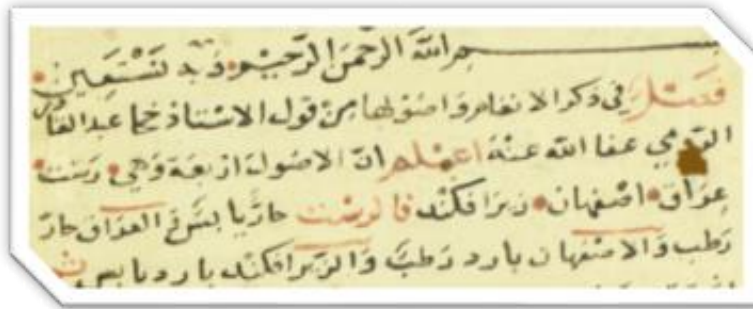 بسم الله الرحمن الرحيم وبه نستعين
فصل في ذكر الانغام واصولها من قول الاستاذ خجا عبد القادر
عفا الله عنه اعلم ان الاصول اربعة وهي رست
عراق اصفهان زيرافكند فالرست حار يابس والعراق حار
رطب والاصفهان بارد رطب والزيرافكند بارد يابس